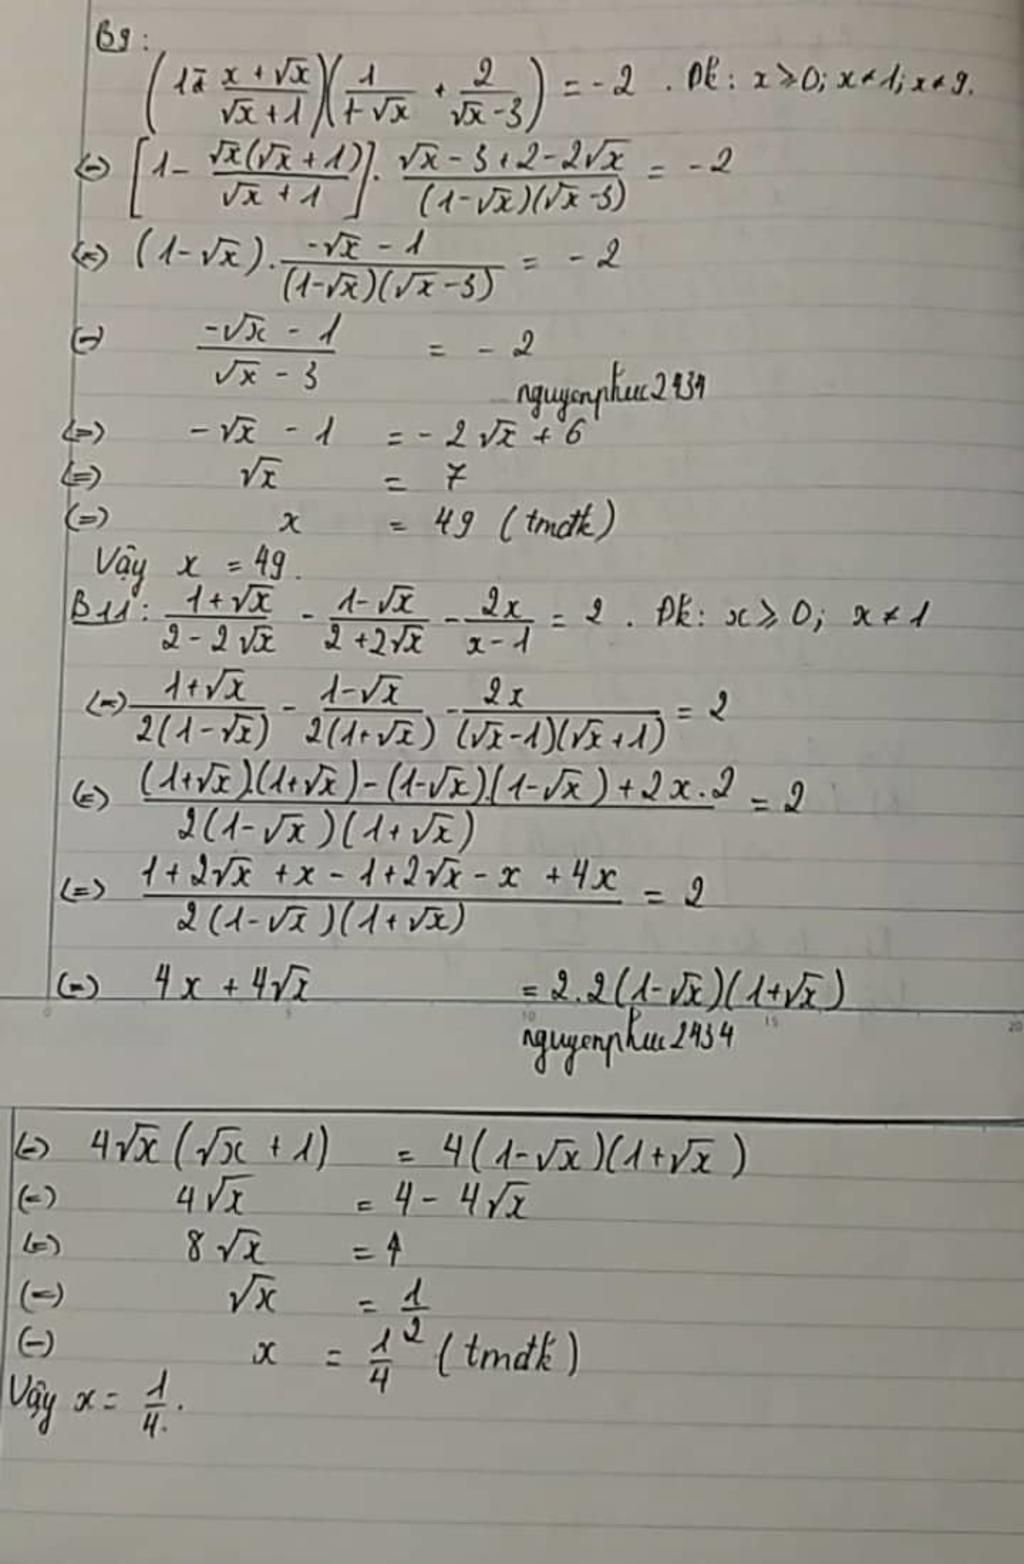 B9:
(1 - (x + √x)/(√x + 1))(1/(1 - √x) + 2/(√x - 3)) = -2 . Đk: x ⩾ 0; x ≠ 1; x ≠ 9.
(=) [1 - √x(√x + 1)/(√x + 1)] . (√x - 3 + 2 - 2√x)/((1 - √x)(√x - 3)) = -2
(=) (1 - √x) . (-√x - 1)/((1 - √x)(√x - 3)) = -2
(=) (-√x - 1)/(√x - 3) = -2
nguyenphuc2434
(=) -√x - 1 = -2√x + 6
(=) √x = 7
(=) x = 49 (tmđk)
Vậy x = 49.
B11: (1 + √x)/(2 - 2√x) - (1 - √x)/(2 + 2√x) - 2x/(x - 1) = 2 . Đk: x ⩾ 0; x ≠ 1
(=) (1 + √x)/(2(1 - √x)) - (1 - √x)/(2(1 + √x)) - 2x/((√x - 1)(√x + 1)) = 2
(=) ((1 + √x).(1 + √x) - (1 - √x).(1 - √x) + 2x . 2)/(2(1 - √x)(1 + √x)) = 2
(=) (1 + 2√x + x - 1 + 2√x - x + 4x)/(2(1 - √x)(1 + √x)) = 2
(=) 4x + 4√x = 2.2(1 - √x)(1 + √x)
0 5 10 15 20
nguyenphuc2434
(=) 4√x(√x + 1) = 4(1 - √x)(1 + √x)
(=) 4√x = 4 - 4√x
(=) 8√x = 4
(=) √x = 1/2
(=) x = 1/4 (tmđk)
Vậy x = 1/4.